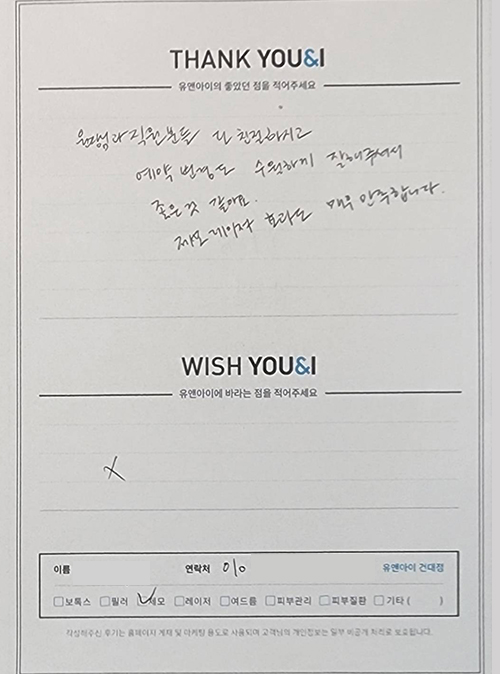 THANK YOU&I
유앤아이의 좋았던 점을 적어주세요
원장님과 직원분들 다 친절하시고
예약 변경도 수월하게 잘해주셔서
좋은것 같아요.
제모레이저 효과도 매우 만족합니다.
WISH YOU&I
유앤아이에 바라는 점을 적어주세요
X
이름 연락처 010 유앤아이 건대점
보톡스 필러 제모 레이저 여드름 피부관리 피부질환 기타 ( )
작성해주신 후기는 홈페이지 게재 및 마케팅 용도로 사용되며 고객님의 개인정보는 일부 비공개 처리로 보호됩니다.